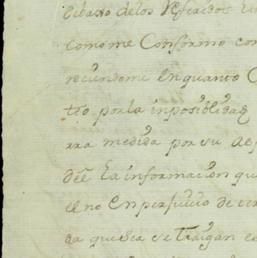 delos Referidos
como me Conformo con
reciendome En quanto
tto por la inposiblidad
rra medida por su
del La informacion qu
el no En perjuicio de ter
da que sea se traigan